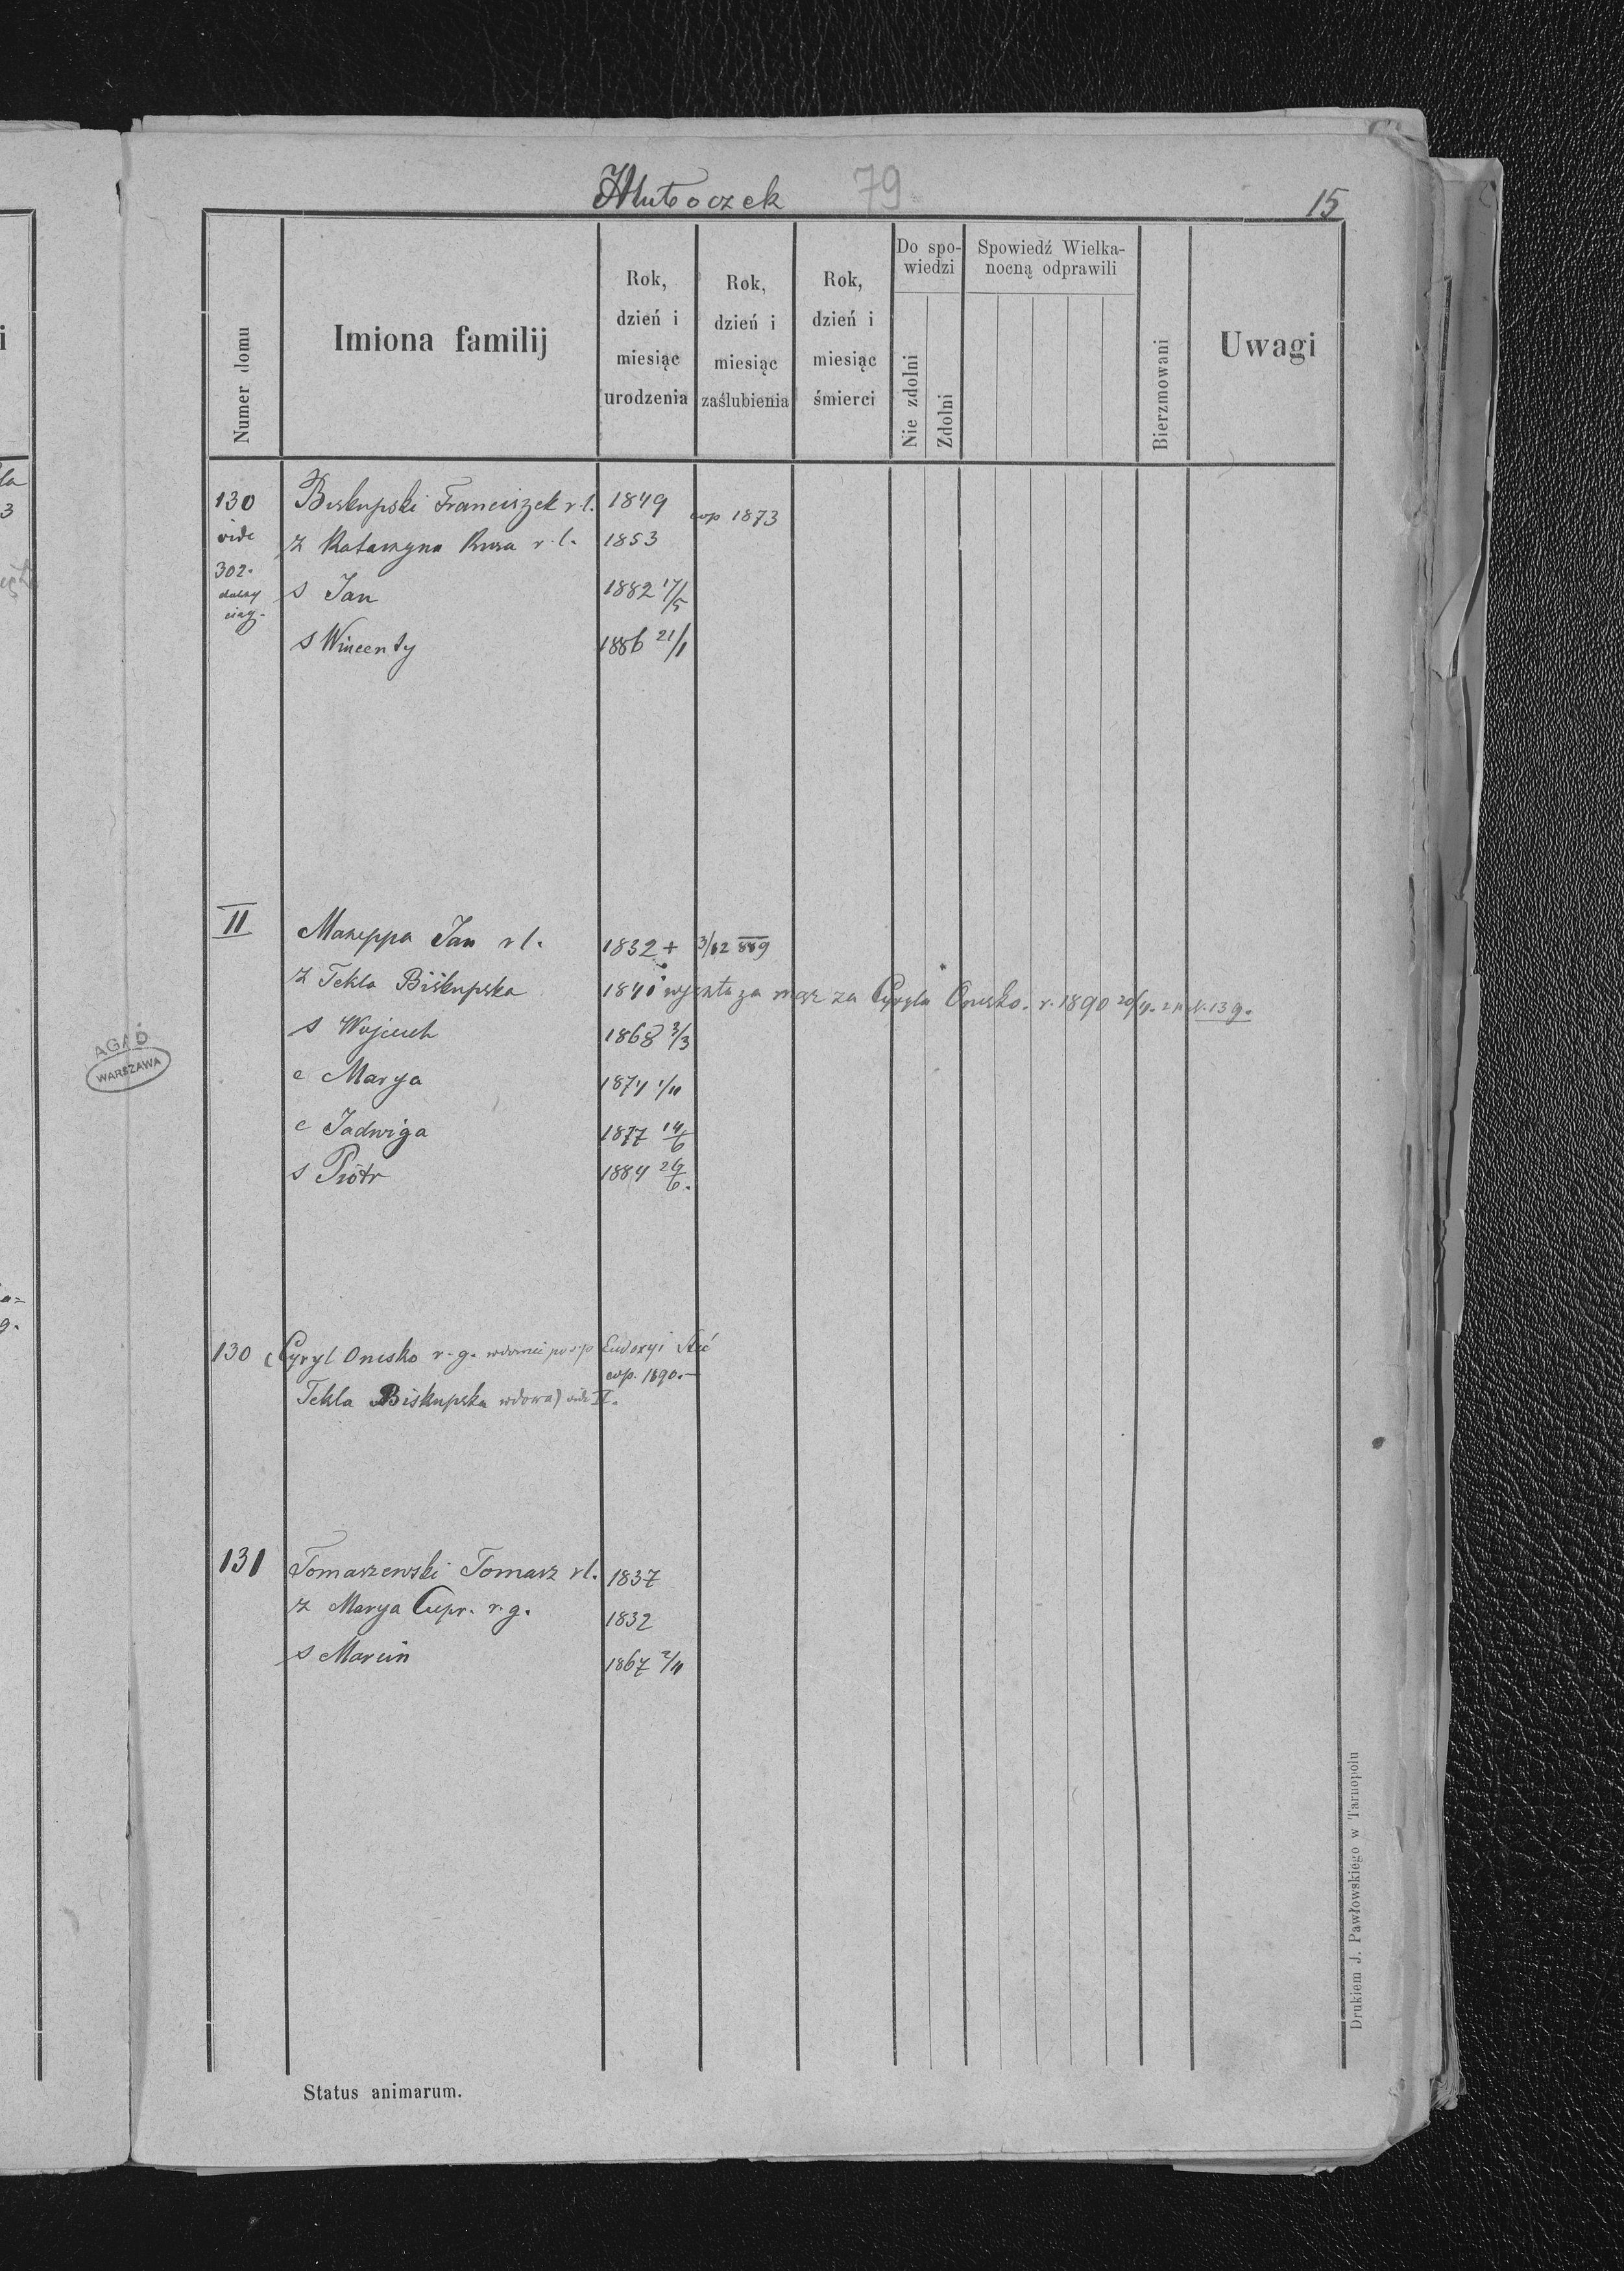 Hłuboczek 79 15
Numer domu
Imiona familij
Rok,
dzień i
miesiąc
urodzenia
Rok,
dzień i
miesiąc
zaślubienia
Rok,
dzień i
miesiąc
śmierci
Do spo-
wiedzi
Nie zdolni
Zdolni
Spowiedź Wielka-
nocną odprawili
Bierzmowani
Uwagi
130 Biskupski Franciszek r. l. 1849 cop 1873
vide ż Katarzyna r. l. 1853
302.
dalszy s Jan 1882 17/5
ciąg.
s Wincenty 1886 21/1
II Mazeppa Jan r l. 1832 + 3/12 889
ż Tekla Biskupska 1840 wyszła za mąż za Cyryla Onisko. r. 1890
s Wojciech 1868 3/3
c Marya 1874 1/11
c Jadwiga 1877 14/6
s Piotr 1884 29/6.
130 Cyryl Onisko r. g. wdowiec po ś p Eudoxyi
cop. 1890.—
Tekla Biskupska wdowa) vide II.
131 Tomaszewski Tomasz r l. 1837
ż Marya Cupr. r. g. 1832
s Marcin 1867 2/11
AGAD
WARSZAWA
Status animarum.
Drukiem J. Pawłowskiego w Tarnopolu